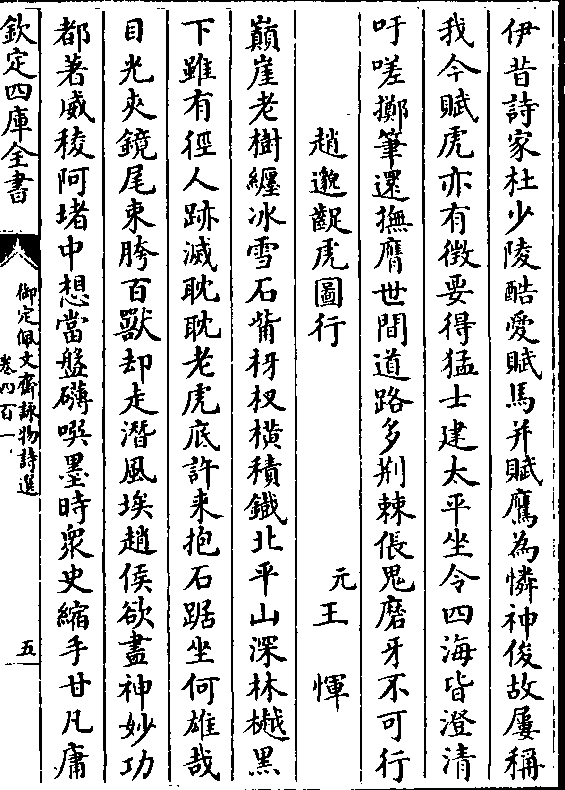 伊昔詩家杜少陵酷愛賦馬并賦鷹為憐神俊故屢稱
我今賦虎亦有徴要得猛士建太平坐令四海皆澄清
吁嗟擲筆還撫膺世間道路多荆棘倀鬼磨牙不可行
趙邈齪虎圖行
元王惲
巔崖老樹纏冰雪石觜枒杈横積鐡北平山深林樾黒
下雖有徑人跡滅耽耽老虎底許来抱石踞坐何雄哉
目光夾鏡尾束胯百獸却走潛風埃趙侯欲盡神妙功
都著威稜阿堵中想當盤礴噀墨時衆史縮手甘凡庸
欽定四庫全書
御定佩文齋詠物詩選
卷四百一
五